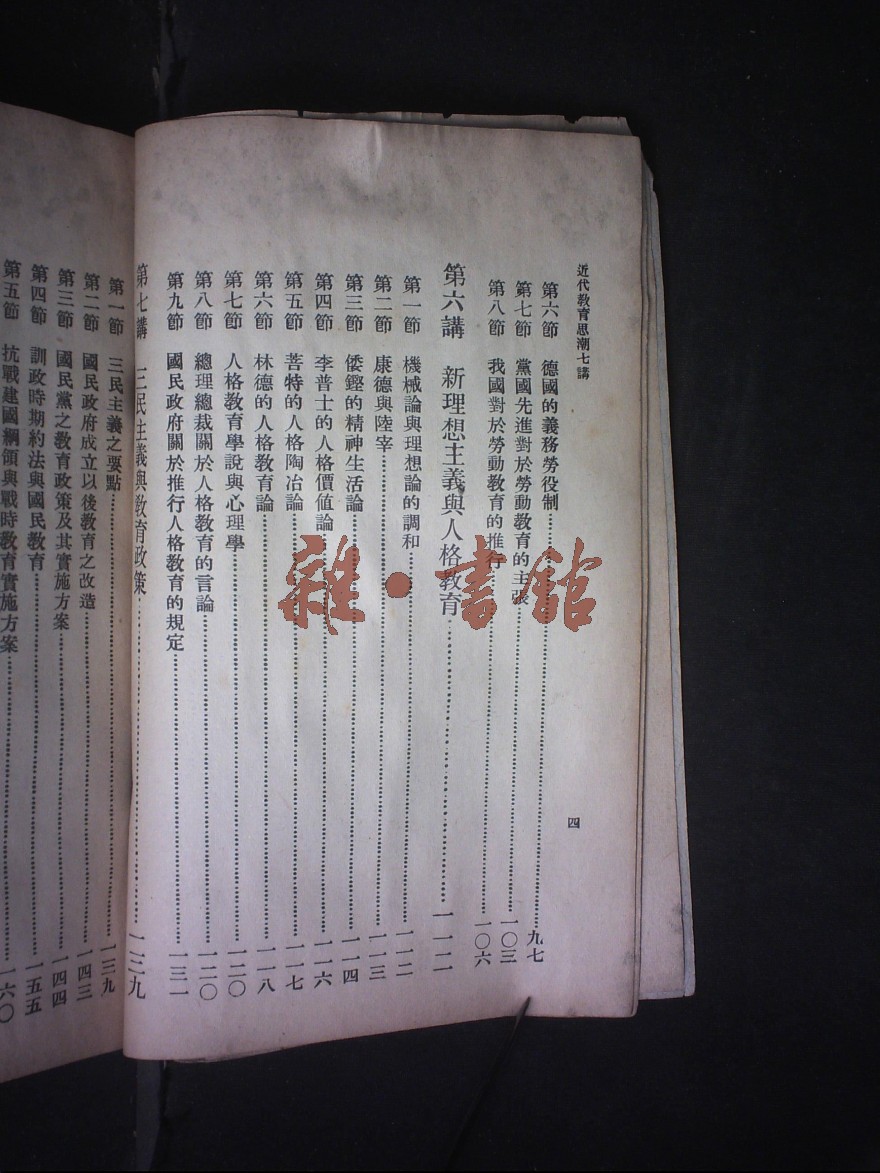 近代教育思潮七講
四
第六節 德國的義務勞役制……九七
第七節 黨國先進對於勞動教育的主張……一〇三
第八節 我國對於勞動教育的推行……一〇六
第六講 新理想主義與人格教育……一一二
第一節 機械論與理想論的調和……一一二
第二節 康德與陸宰……一一三
第三節 倭鏗的精神生活論……一一四
第四節 李普士的人格價值論……一一六
第五節 菩特的人格陶冶論……一一七
第六節 林德的人格教育論……一一八
第七節 人格教育學說與心理學……一二〇
第八節 總理總裁關於人格教育的言論……一二〇
第九節 國民政府關於推行人格教育的規定……一三一
第七講 三民主義與教育政策……一三九
第一節 三民主義之要點……一三九
第二節 國民政府成立以後教育之改造……一四三
第三節 國民黨之教育政策及其實施方案……一四四
第四節 訓政時期約法與國民教育……一五五
第五節 抗戰建國綱領與戰時教育實施方案……一六〇
雜·書館